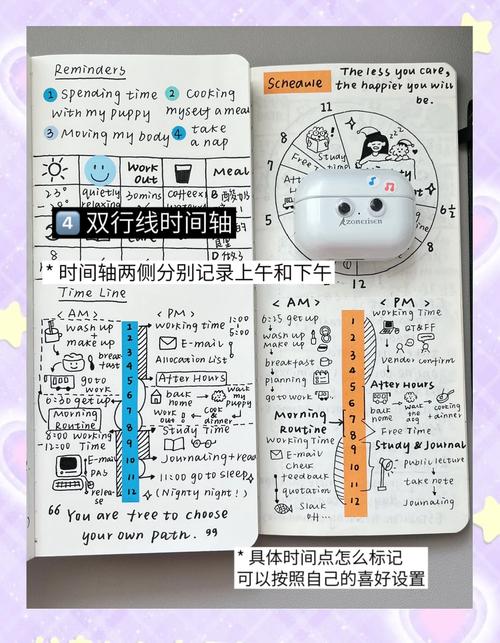 Reminders
1 Spending time
with my puppy
2 Cooking
myself a meal
3 Moving my body
4 take
a nap
Work
out
Meal
23°
quietly
relaxing
30mins
coffee
B 酸奶
4 双行线时间轴
* 时间轴两侧分别记录上午和下午
Time Line
< AM >
wash up
+
make up
breakfast
go to work
6:30 get up
Morning
Routine
8:00 working
12:00 Time
E-mail
PAS
release
1
2
3
4
5
6
7
8
9
10
11
12
< PM >
Working time 1:00
5:00
E-mail
Allocation List
After Hours
back
home
Walk
my
puppy
work
out
Cook
&
dinner
Study Time
Journaling + read
11:00 go to sleep
(Nighty night!)
“ You are free to choose
your own path. ”
Schedule
The less you care,
the happier you will
be.
11
12
1
8
7
6 1/2
5
Study
Free
Azonerisen
< AM >
6:25 get up
wash up
make up
breakfast
planning
go to work
Morning
Routine
Working Time
E-mail
Check
feedback
quotation
Slack
off...
1
2
3
4
5
6
7
8
9
10
11
12
< PM >
Working Time
GT&FF
Vendor confirm
After Hours
back
home
walk
the
dog
cooking
+ dinner
Free Time
Study & Journal
Public lecture
take note
Journaling
* 具体时间点怎么标记
可以按照自己的喜好设置